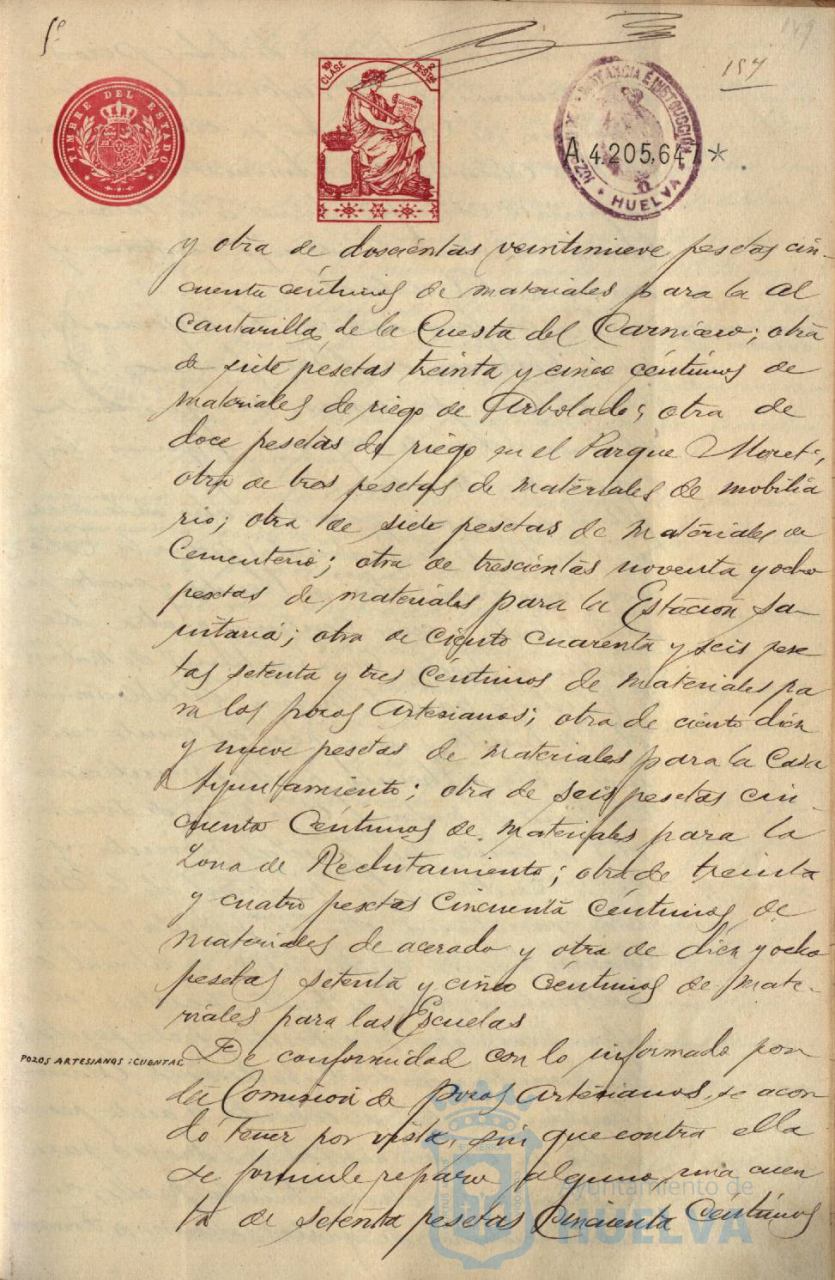 149
157
TIMBRE DEL ESTADO
10ª CLASE
2 PESTAS
INSTANCIA É INSTRUCCIÓN
HUELVA
A.4.205.641*
y otra de doscientas veintinueve pesetas cin-
cuenta céntimos de materiales para la al
cantarilla de la Cuesta del Carnicero; otra
de siete pesetas treinta y cinco céntimos de
materiales de riego de Arbolado; otra de
doce pesetas de riego en el Parque Moret;
otra de tres pesetas de materiales de mobilia
rio; otra de siete pesetas de materiales de
Cementerio; otra de trescientas noventa y ocho
pesetas de materiales para la Estación sa-
nitaria; otra de ciento cuarenta y seis pese
tas setenta y tres céntimos de materiales pa
ra los pozos Artesianos; otra de ciento diez
y nueve pesetas de materiales para la Casa
Ayuntamiento; otra de seis pesetas cin-
cuenta céntimos de materiales para la
Zona de Reclutamiento; otra de treinta
y cuatro pesetas cincuenta céntimos de
materiales de acerado y otra de diez y ocho
pesetas setenta y cinco céntimos de mate-
riales para las Escuelas
POZOS ARTESIANOS: CUENTAS
De conformidad con lo informado por
la Comisión de pozos Artesianos, se acor
dó tener por vista, sin que contra ella
se formule reparo alguno, una cuen
ta de setenta pesetas cincuenta céntimos
Ayuntamiento de
HUELVA